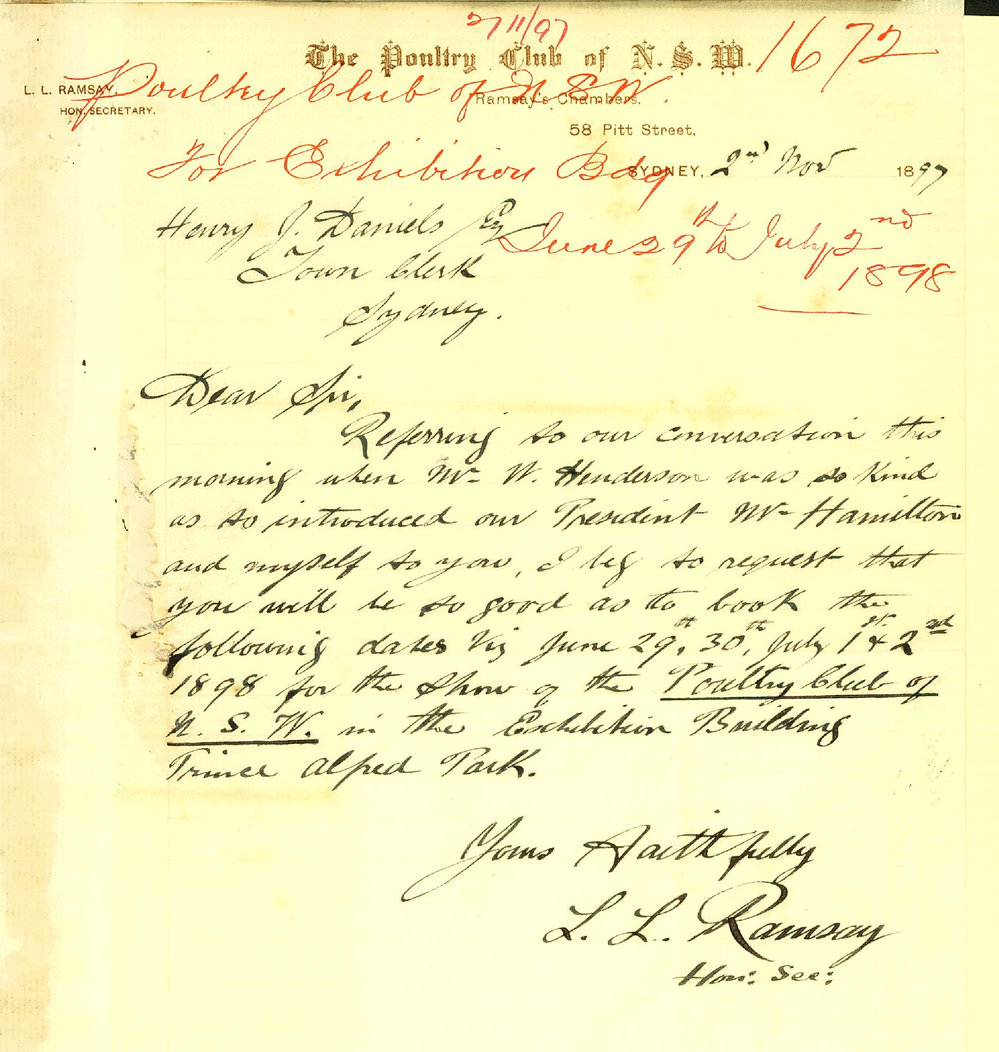 2/11/97
The Poultry Club of N.S.W. 1672
L. L. RAMSAY,
HON. SECRETARY.
Poultry Club of N. S. W.
Ramsay's Chambers,
58 Pitt Street,
For Exhibition Bdg
SYDNEY, 2nd Nov 1897
June 29th to July 2nd
1898
Henry J. Daniels Esq
Town Clerk
Sydney.
Dear Sir,
Referring to our conversation this
morning when Mr W. Henderson was so kind
as to introduced our President Mr Hamilton
and myself to you, I beg to request that
you will be so good as to book the
following dates Viz June 29th, 30th, July 1st & 2nd
1898 for the Show of the Poultry Club of
N. S. W. in the Exhibition Building
Prince Alfred Park.
Yours Faithfully
L. L. Ramsay
Hon: Sec: